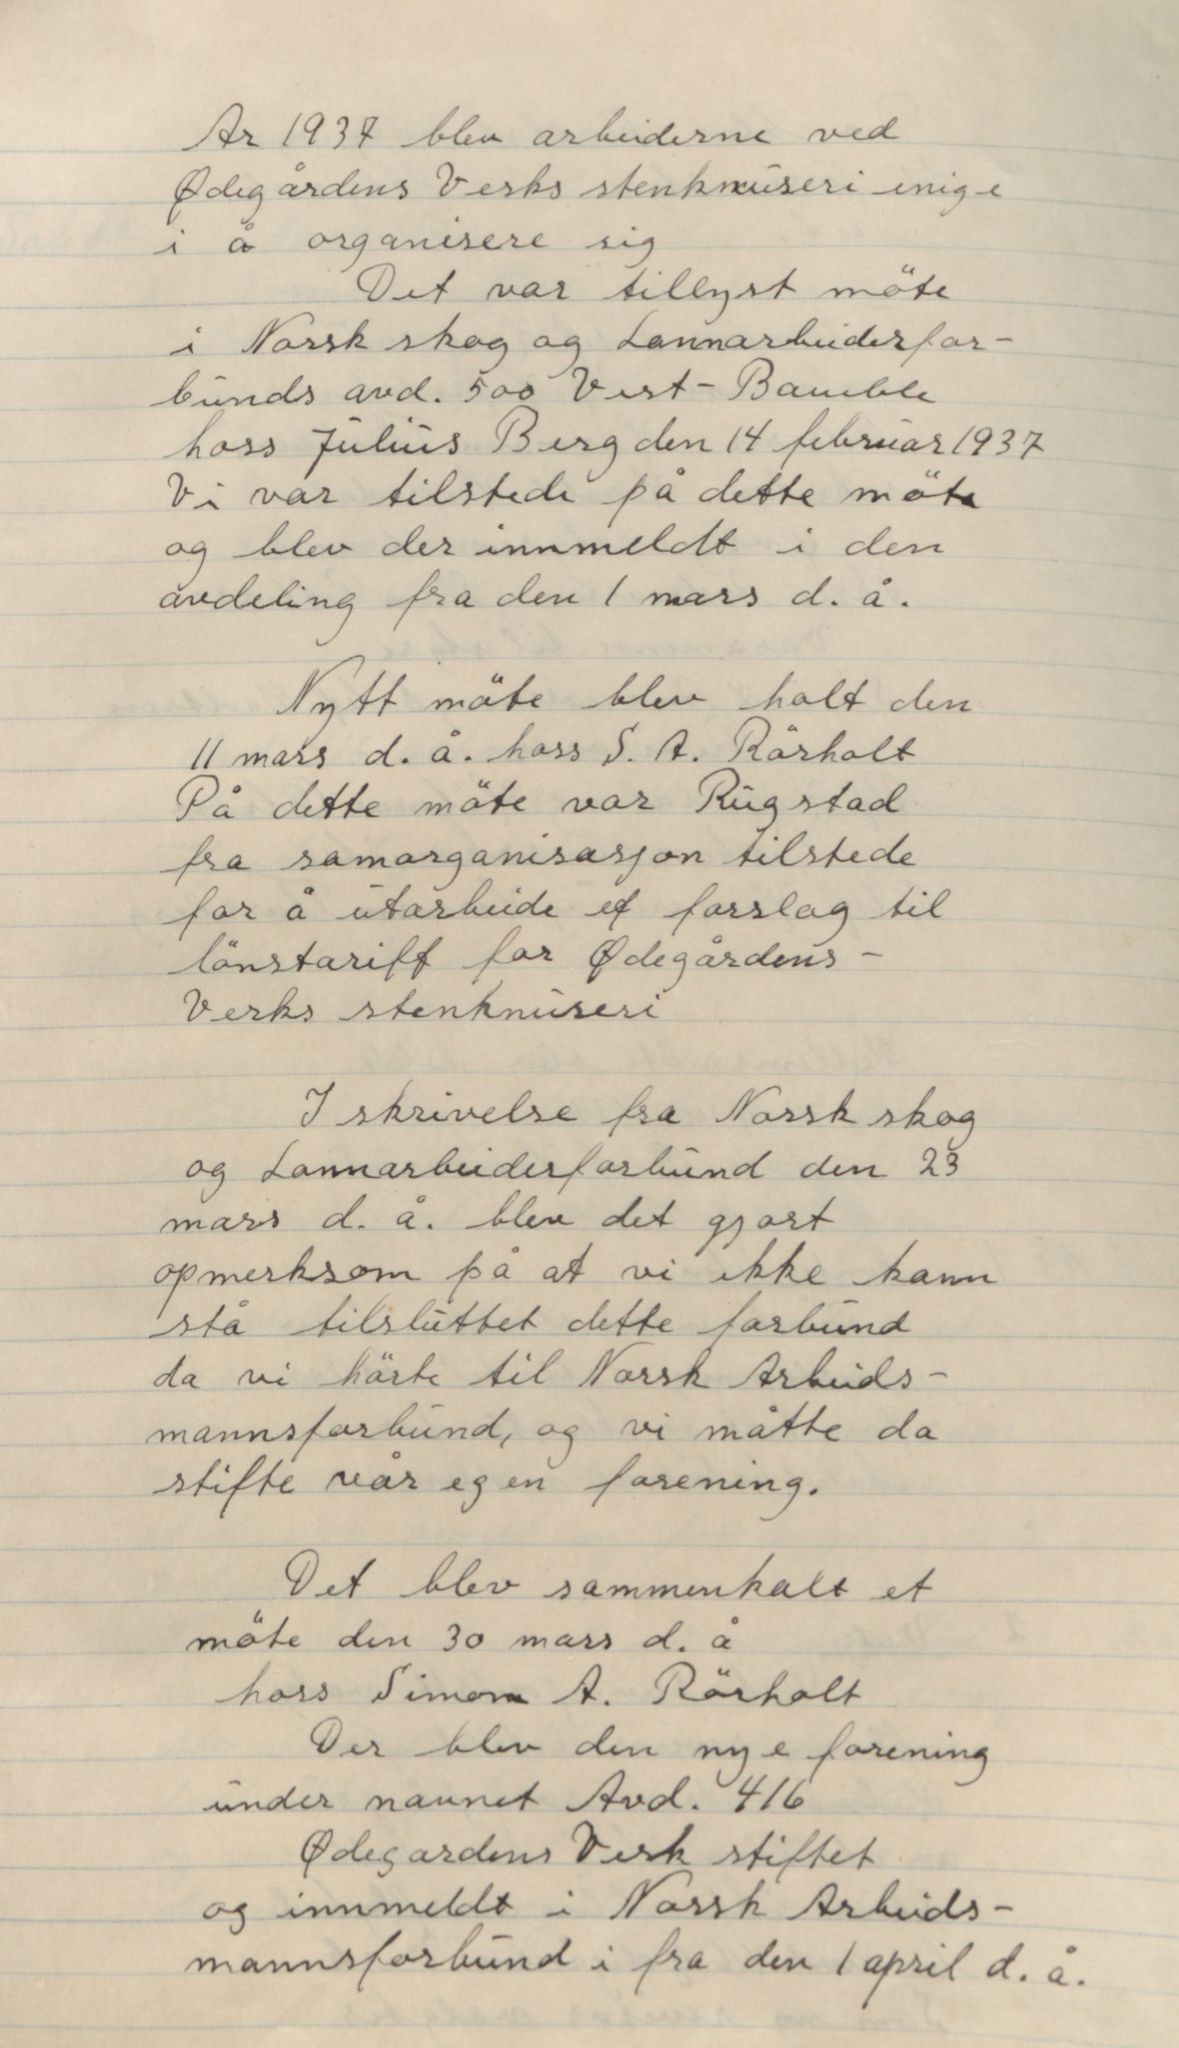 Ar 1937 blev arbeiderne ved
Ødegårdens Verks stenknuseri enige
i å organisere sig
Det var tillyst möte
i Norsk skog og Lannarbeiderfor-
bunds avd. 500 Vest-Bamble
hoss Julius Berg den 14 februar 1937
Vi var tilstede på dette möte
og blev der innmeldt i den
avdeling fra den 1 mars d. å.
Nytt möte blev holt den
11 mars d. å. hoss S. A. Rörholt
På dette möte var Rugstad
fra samorganisasjon tilstede
for å utarbeide et forslag til
lönstariff for Ødegårdens-
Verks stenknuseri
I skrivelse fra Norsk skog
og Lannarbeiderforbund den 23
mars d. å. blev det gjort
opmerksom på at vi ikke kann
stå tilsluttet dette forbund
da vi hörte til Norsk Arbeids-
mannsforbund, og vi måtte da
stifte vår egen forening.
Det blev sammenkalt et
möte den 30 mars d. å
hoss Simon A. Rörholt
Der blev den nye forening
under navnet Avd. 416
Ødegardens Verk stiftet
og innmeldt i Norsk Arbeids-
mannsforbund i fra den 1 april d. å.